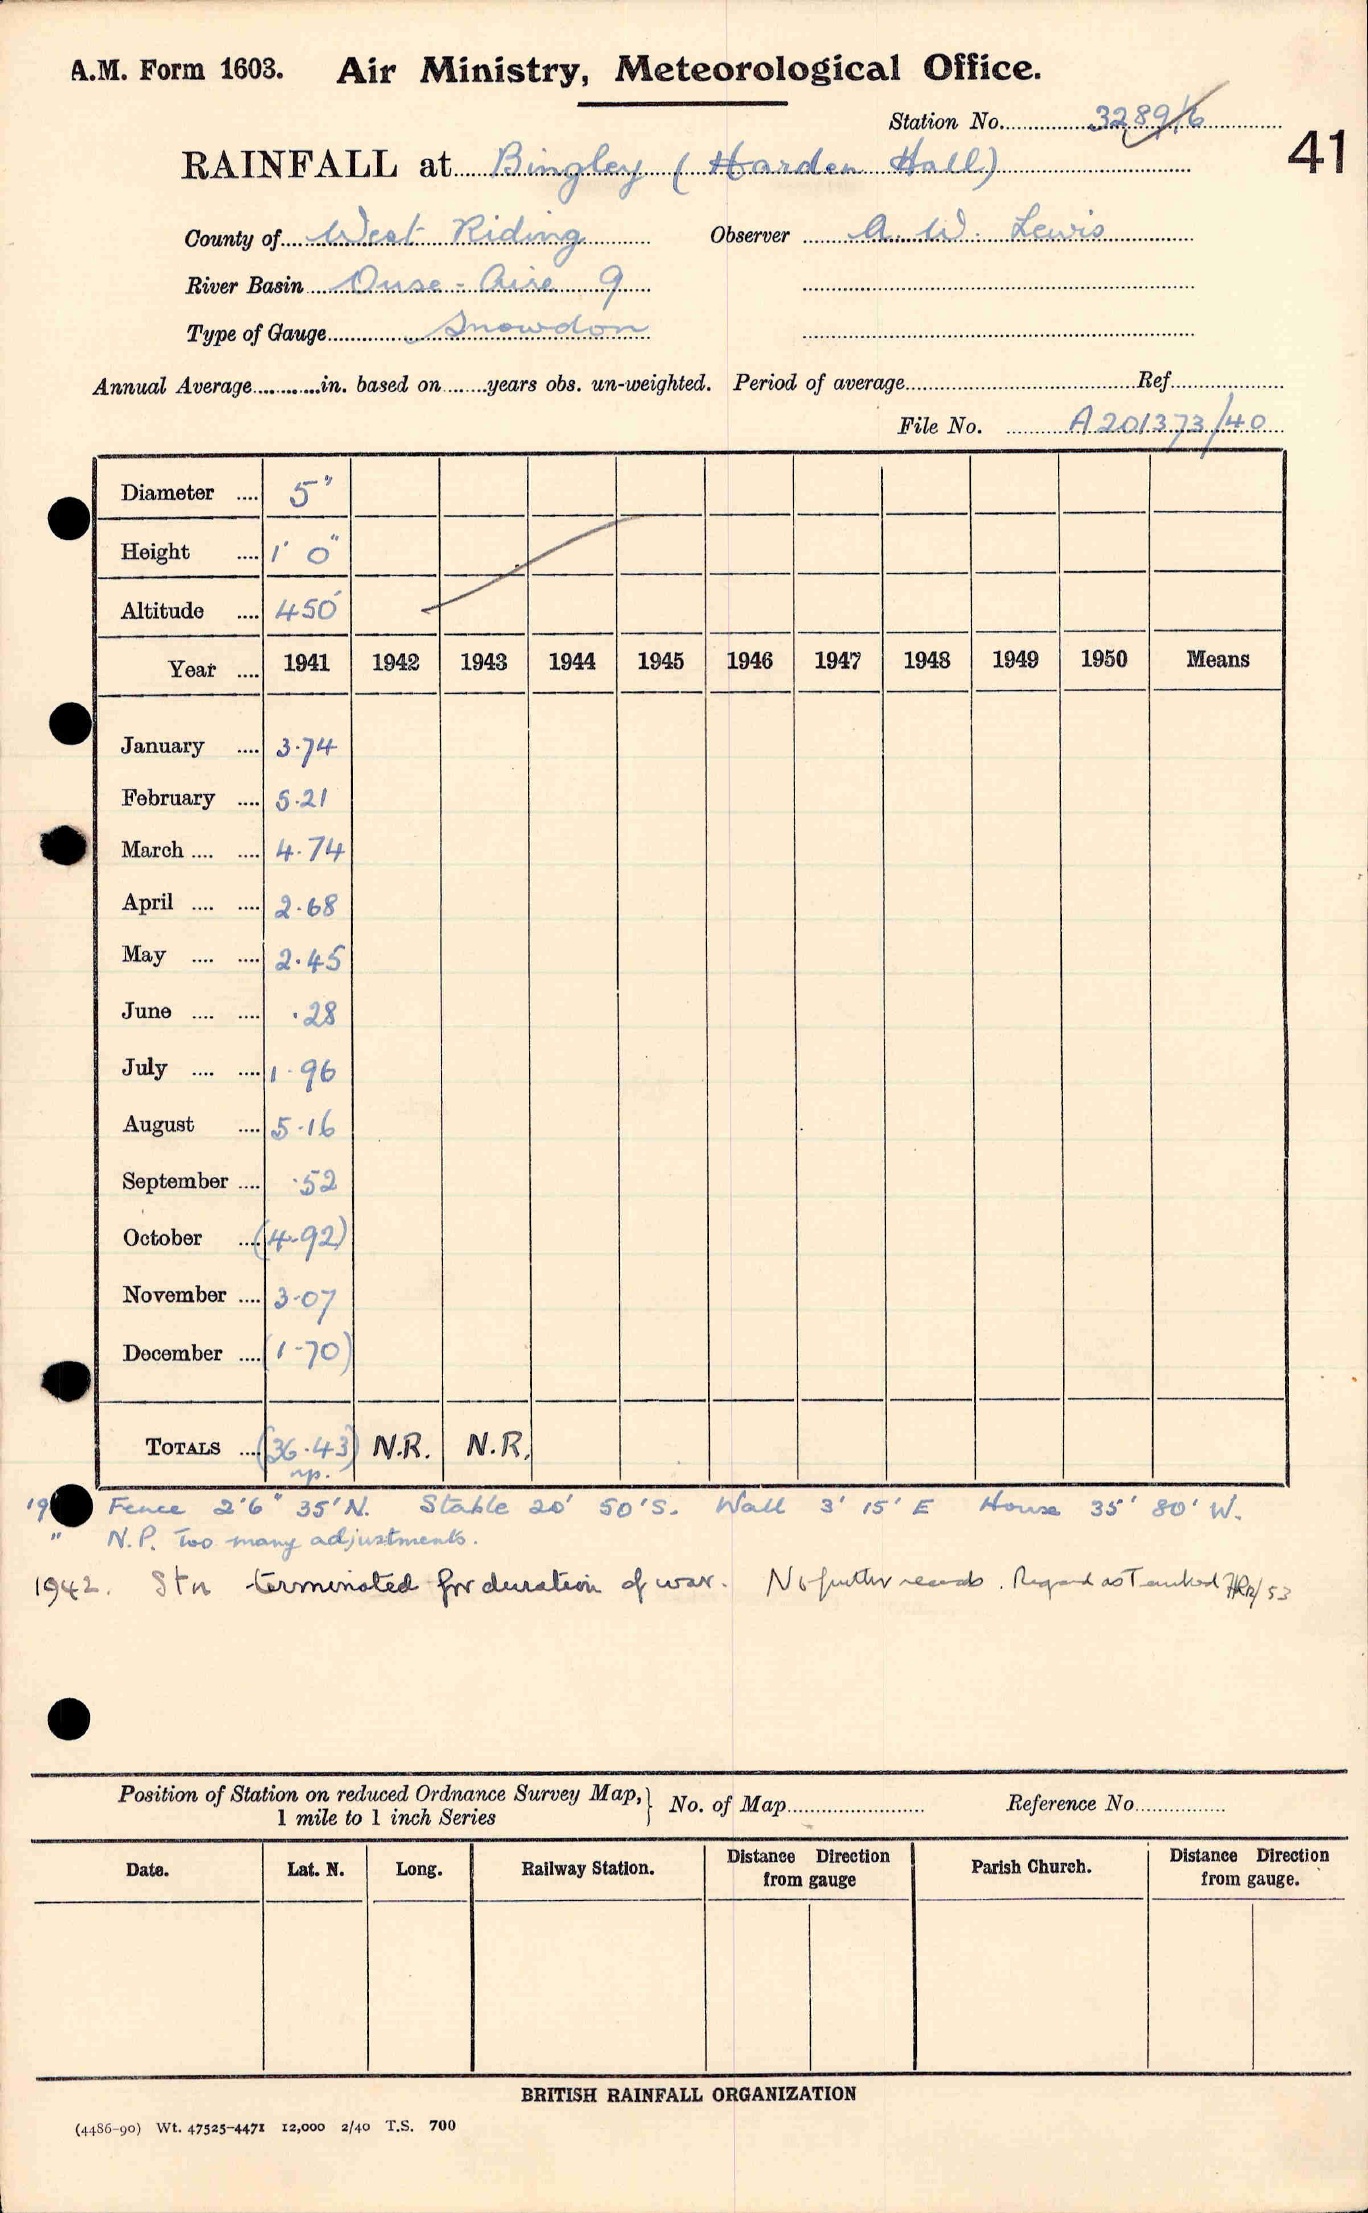 A.M. Form 1603. Air Ministry, Meteorological Office.
Station No. 3289/6
41
RAINFALL at Bingley (Harden Hall)
County of West Riding Observer A. W. Lewis
River Basin Ouse - Aire 9
Type of Gauge Snowdon
Annual Average in. based on years obs. un-weighted. Period of average Ref.
File No. A201373/40
Diameter 5"
Height 1' 0"
Altitude 450'
Year 1941 1942 1943 1944 1945 1946 1947 1948 1949 1950 Means
January 3.74
February 5.21
March 4.74
April 2.68
May 2.45
June .28
July 1.96
August 5.16
September .52
October (4.92)
November 3.07
December (1.70)
TOTALS (36.43) N.R. N.R.
n.p.
Fence 2'6" 35'N. Stable 20' 50'S. Wall 3' 15' E House 35' 80' W.
" N.P. Too many adjustments.
1942. Stn terminated for duration of war. No further records. Regard as
Position of Station on reduced Ordnance Survey Map, } No. of Map Reference No.
1 mile to 1 inch Series
Date. Lat. N. Long. Railway Station. Distance Direction from gauge Parish Church. Distance Direction from gauge.
BRITISH RAINFALL ORGANIZATION
(4486-90) Wt. 47525-4471 12,000 2/40 T.S. 700